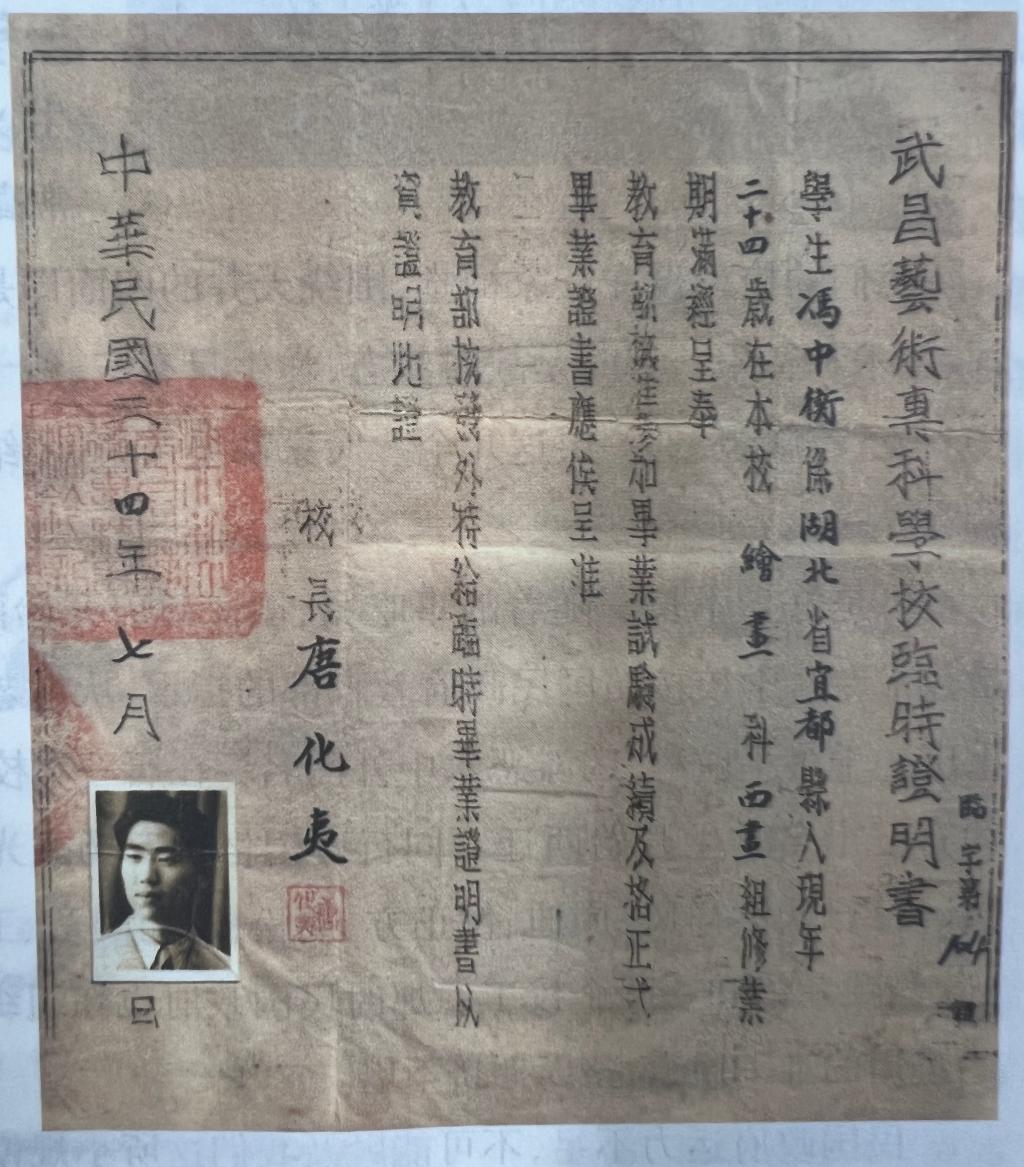 武昌藝術專科學校臨時證明書
臨字第104號
學生馮中衡係湖北省宜都縣人現年
二十四歲在本校繪畫科西畫組修業
期滿經呈奉
教育部核准參加畢業試驗成績及格正式
畢業證書應俟呈准
教育部核發外特給臨時畢業證明書以
資證明此證
校長唐化夷
中華民國三十四年七月日